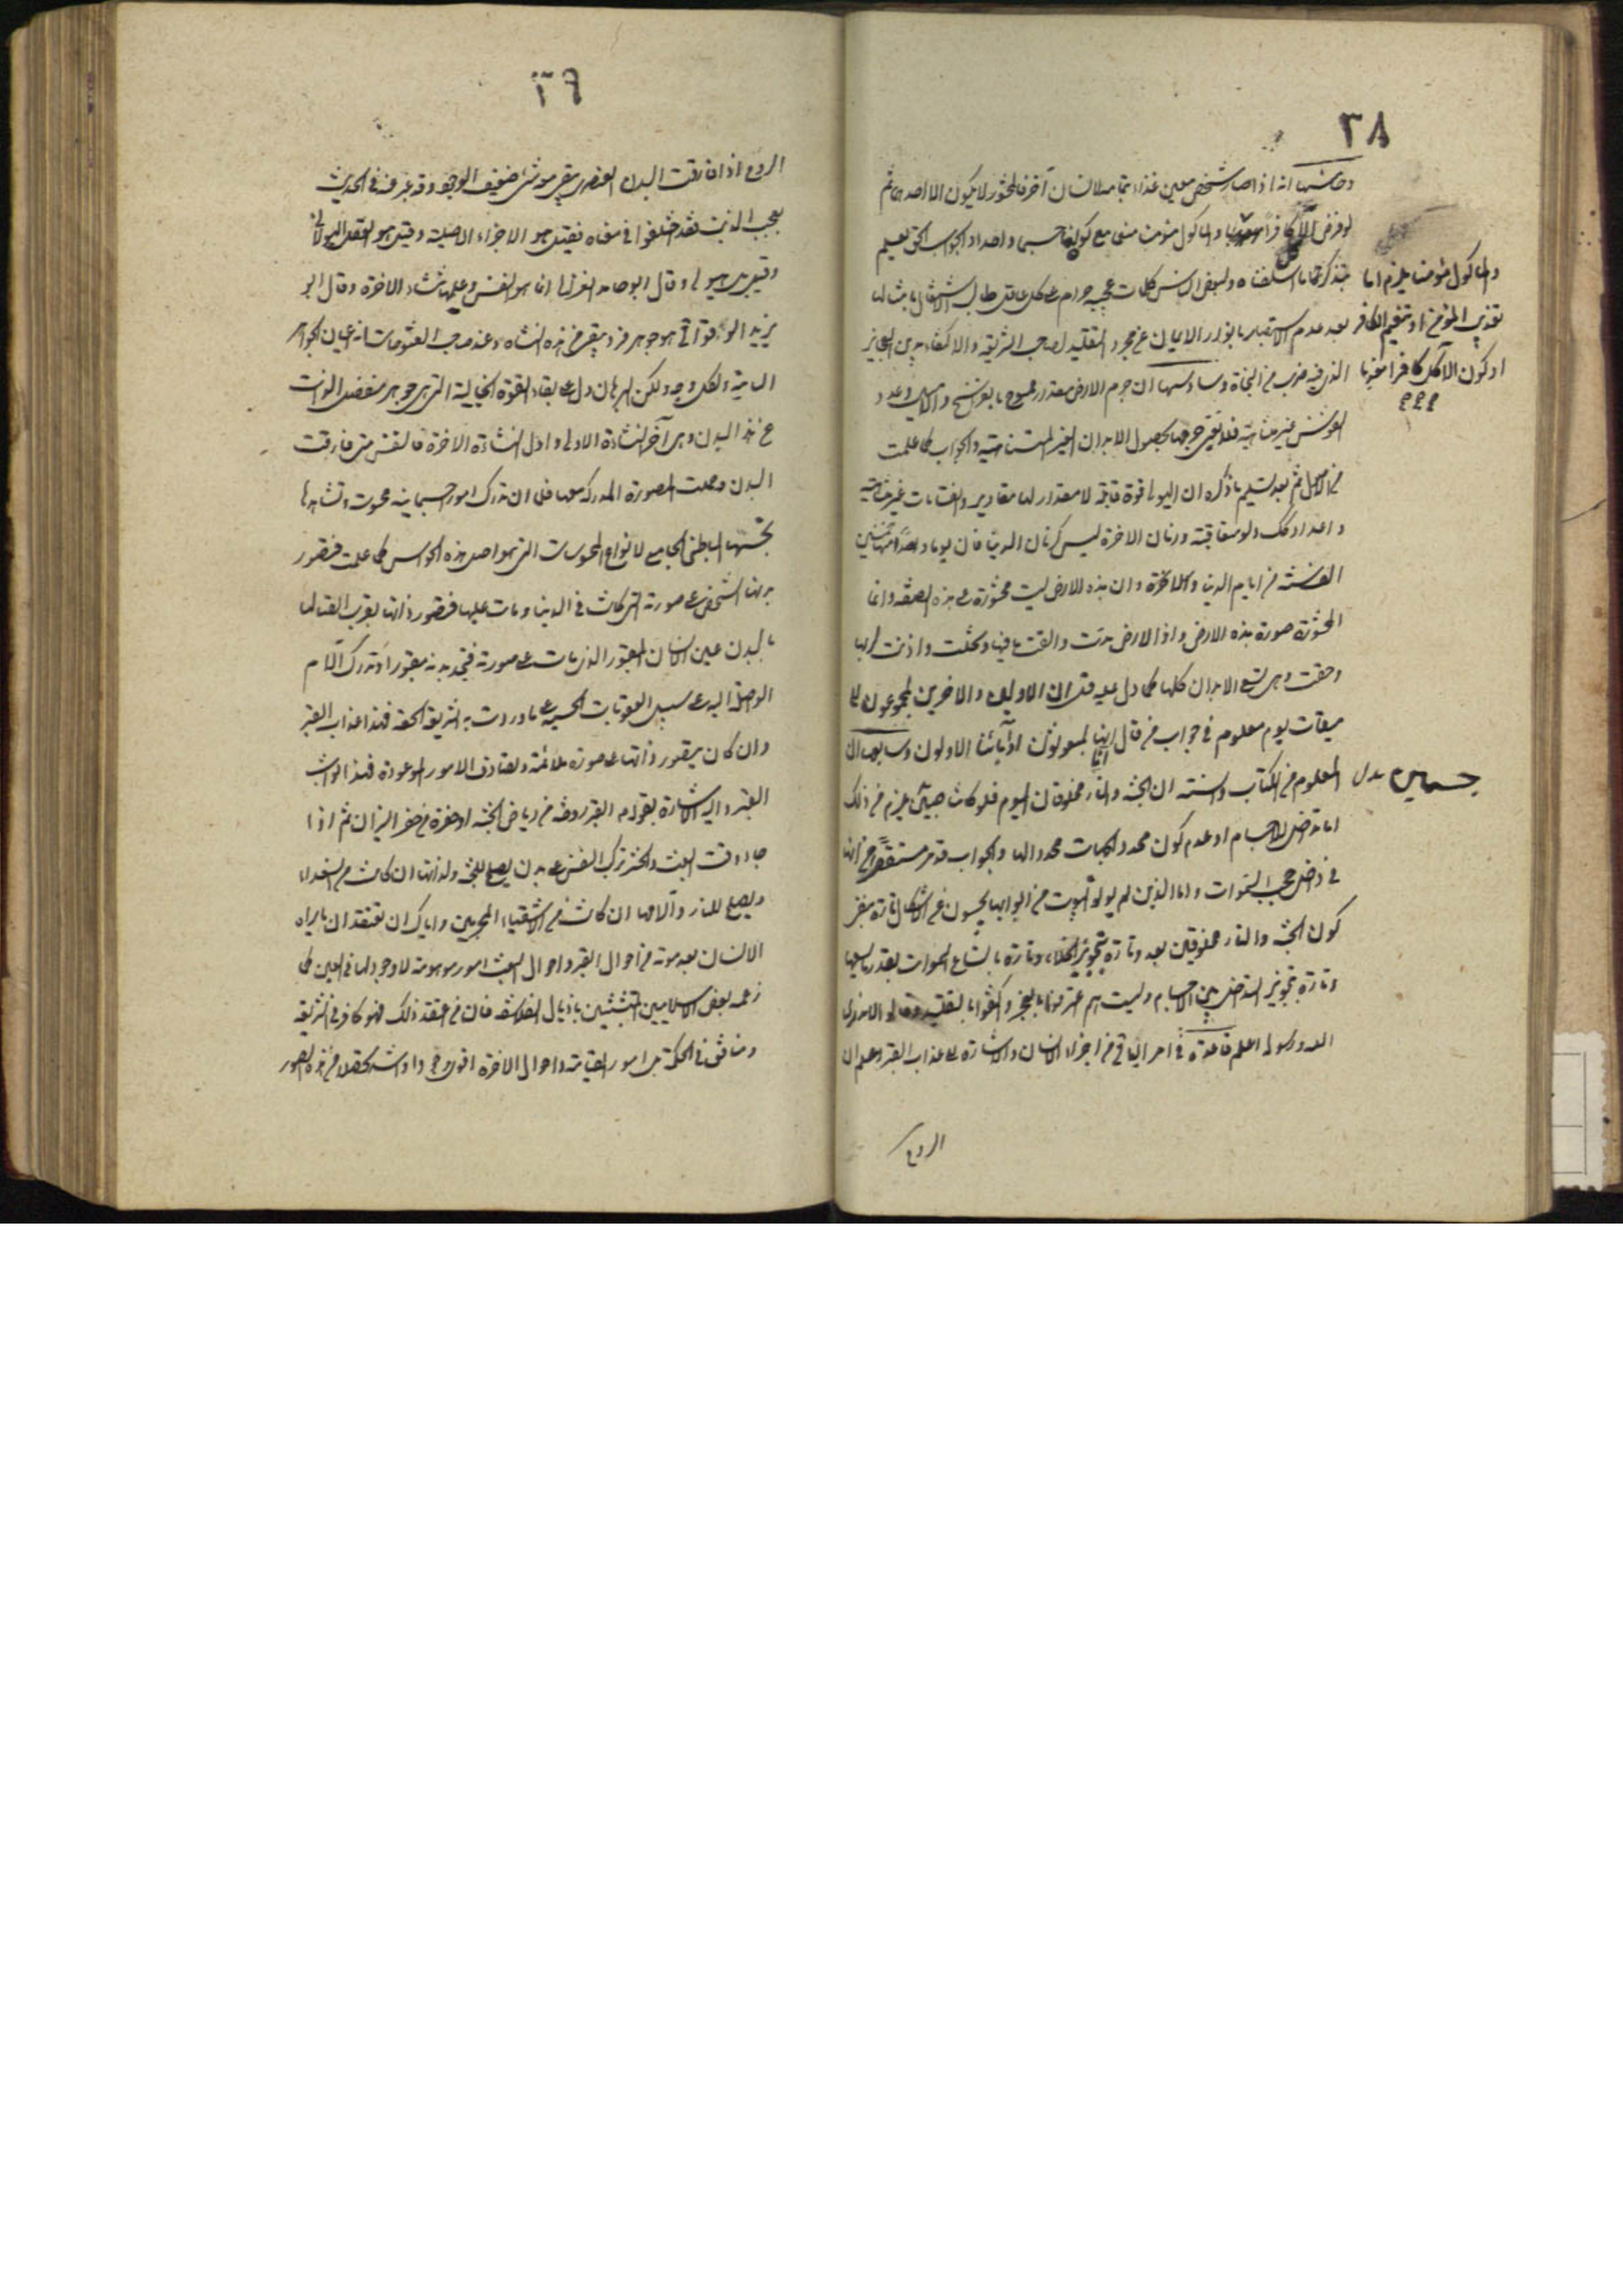 ٣٨
وخامسها انه اذا صار شخص معين غذاء بتمامه لانسان آخر فالمحشور لا يكون الا احدهما ثم
لو فرض الآكل كافرا والمأكول مؤمنا مع كونهما جسما واحدا والجواب الحق يعلم
بتذكر ما اسلفناه ولبعض الناس كلمات عجيبة حرام على كل عاقل طالب الاشتغال بامثالها
بعد عدم الاستبصار بانوار الايمان عن مجرد التقليد لصاحب الشريعة والاكتفاء بدين العجائز
الذي فيه ضرب من النجاة وسادسها ان جرم الارض مقدار ممسوح بالفراسخ والاميال وعدد
النفوس غير متناهية فلا يفي جرمها بحصول الابدان الغير المتناهية والجواب كما علمت
من الاصل ثم بعد تسليم ما ذكره ان الهيولى قوة قابلة لا مقدار لها مقادير وانقسامات غير متناهية
واعداد كذلك ولو متعاقبة وزمان الاخرة ليس كزمان الدنيا فان يوما واحدا منها كخمسين
الف سنة من ايام الدنيا وان هذه الارض ليست محشورة على هذه الصفة وانما
المحشورة صورة هذه الارض واذا الارض مدت والقت ما فيها وتخلت واذنت لربها
وحقت وهي تسع الابدان كلها كما دل عليه قل ان الاولين والاخرين لمجموعون الى
ميقات يوم معلوم في جواب من قال ائنا لمبعوثون اوآباؤنا الاولون وسابعها ان
المعلوم من الكتاب والسنة ان الجنة والنار مخلوقان اليوم فلو كانت جسمانيين يلزم من ذلك
اما تداخل الاجسام او عدم كون محدد الجهات محددا لها والجواب قد مر مستقصى من انها
في داخل حجب السموات واما الذين لم يأتوا البيوت من ابوابها يجيبون عن الاشكال تارة بنفي
كون الجنة والنار مخلوقين بعد وتارة بتجويز الخلاء وتارة باتساع السموات بقدر ما يسعها
وتارة بتجويز التداخل بين الاجسام وليت هم اعترفوا بالعجز واكتفوا بالتقليد وقالوا لا ندري
الله ورسوله اعلم قاعدة في امر الباقي من اجزاء الانسان والاشارة الى عذاب القبر اعلم ان
الروح
والمأكول مؤمنا يلزم اما
تعذيب المؤمن او تنعيم الكافر
او كون الآكل كافرا معذبا
٣٩
الروح اذا فارقت البدن العنصري يبقى معه شيء ضعيف الوجود وقد عبر عنه في الحديث
بعجب الذنب فقد اختلفوا في معناه فقيل هو الاجزاء الاصلية وقيل هو العقل الهيولاني
وقيل بل هيولى وقال ابو حامد الغزالي انما هو النفس وعليها تنشأ الاخرة وقال ابو
يزيد الوقواقي هو جوهر فرد يبقى من هذه النشأة وعند صاحب الفتوحات انه اعيان الجواهر
الثابتة ولكل وجه ولكن البرهان دل على بقاء القوة الخيالية التي هي جوهر منفصل الذات
عن هذا البدن وهي آخر النشأة الاولى واول النشأة الاخرة فالنفس متى فارقت
البدن وحملت الصورة المدركة معها فلها ان تدرك امورا جسمانية محسوسة وتشاهدها
بحسها الباطني الجامع لانواع المحسوسات التي هو اصل هذه الحواس كما علمت فتصور
بدنها الشخصي على صورته التي كانت في الدنيا ومات عليها فتصور ذاتها بقرب اتصالها
بالبدن عين الانسان المقبور الذي مات على صورته فتجد بدنه مقبورا وتدرك الآلام
الواصلة اليه على سبيل العقوبات الحسية على ما وردت به الشريعة الحقة فهذا عذاب القبر
وان كان يتصور ذاتها على صورة ملائمة وتصادف الامور الموعودة فهذا ثواب
القبر واليه الاشارة بقوله القبر روضة من رياض الجنة او حفرة من حفر النيران ثم اذا
جاء وقت البعث والحشر تركب النفس على بدن يصلح للجنة ولذاتها ان كانت من السعداء
ويصلح للنار وآلامها ان كانت من الاشقياء المجرمين واياك ان تعتقد ان ما يراه
الانسان بعد موته من احوال القبر واحوال البعث امور موهومة لا وجود لها في العين كما
زعمه بعض الاسلاميين المتشبثين باذيال الفلاسفة فان من اعتقد ذلك فهو كافر في الشريعة
ومنافق في الحكمة بل امور القيامة واحوال الاخرة اقوى وجودا واشد تحصلا من هذه الصور